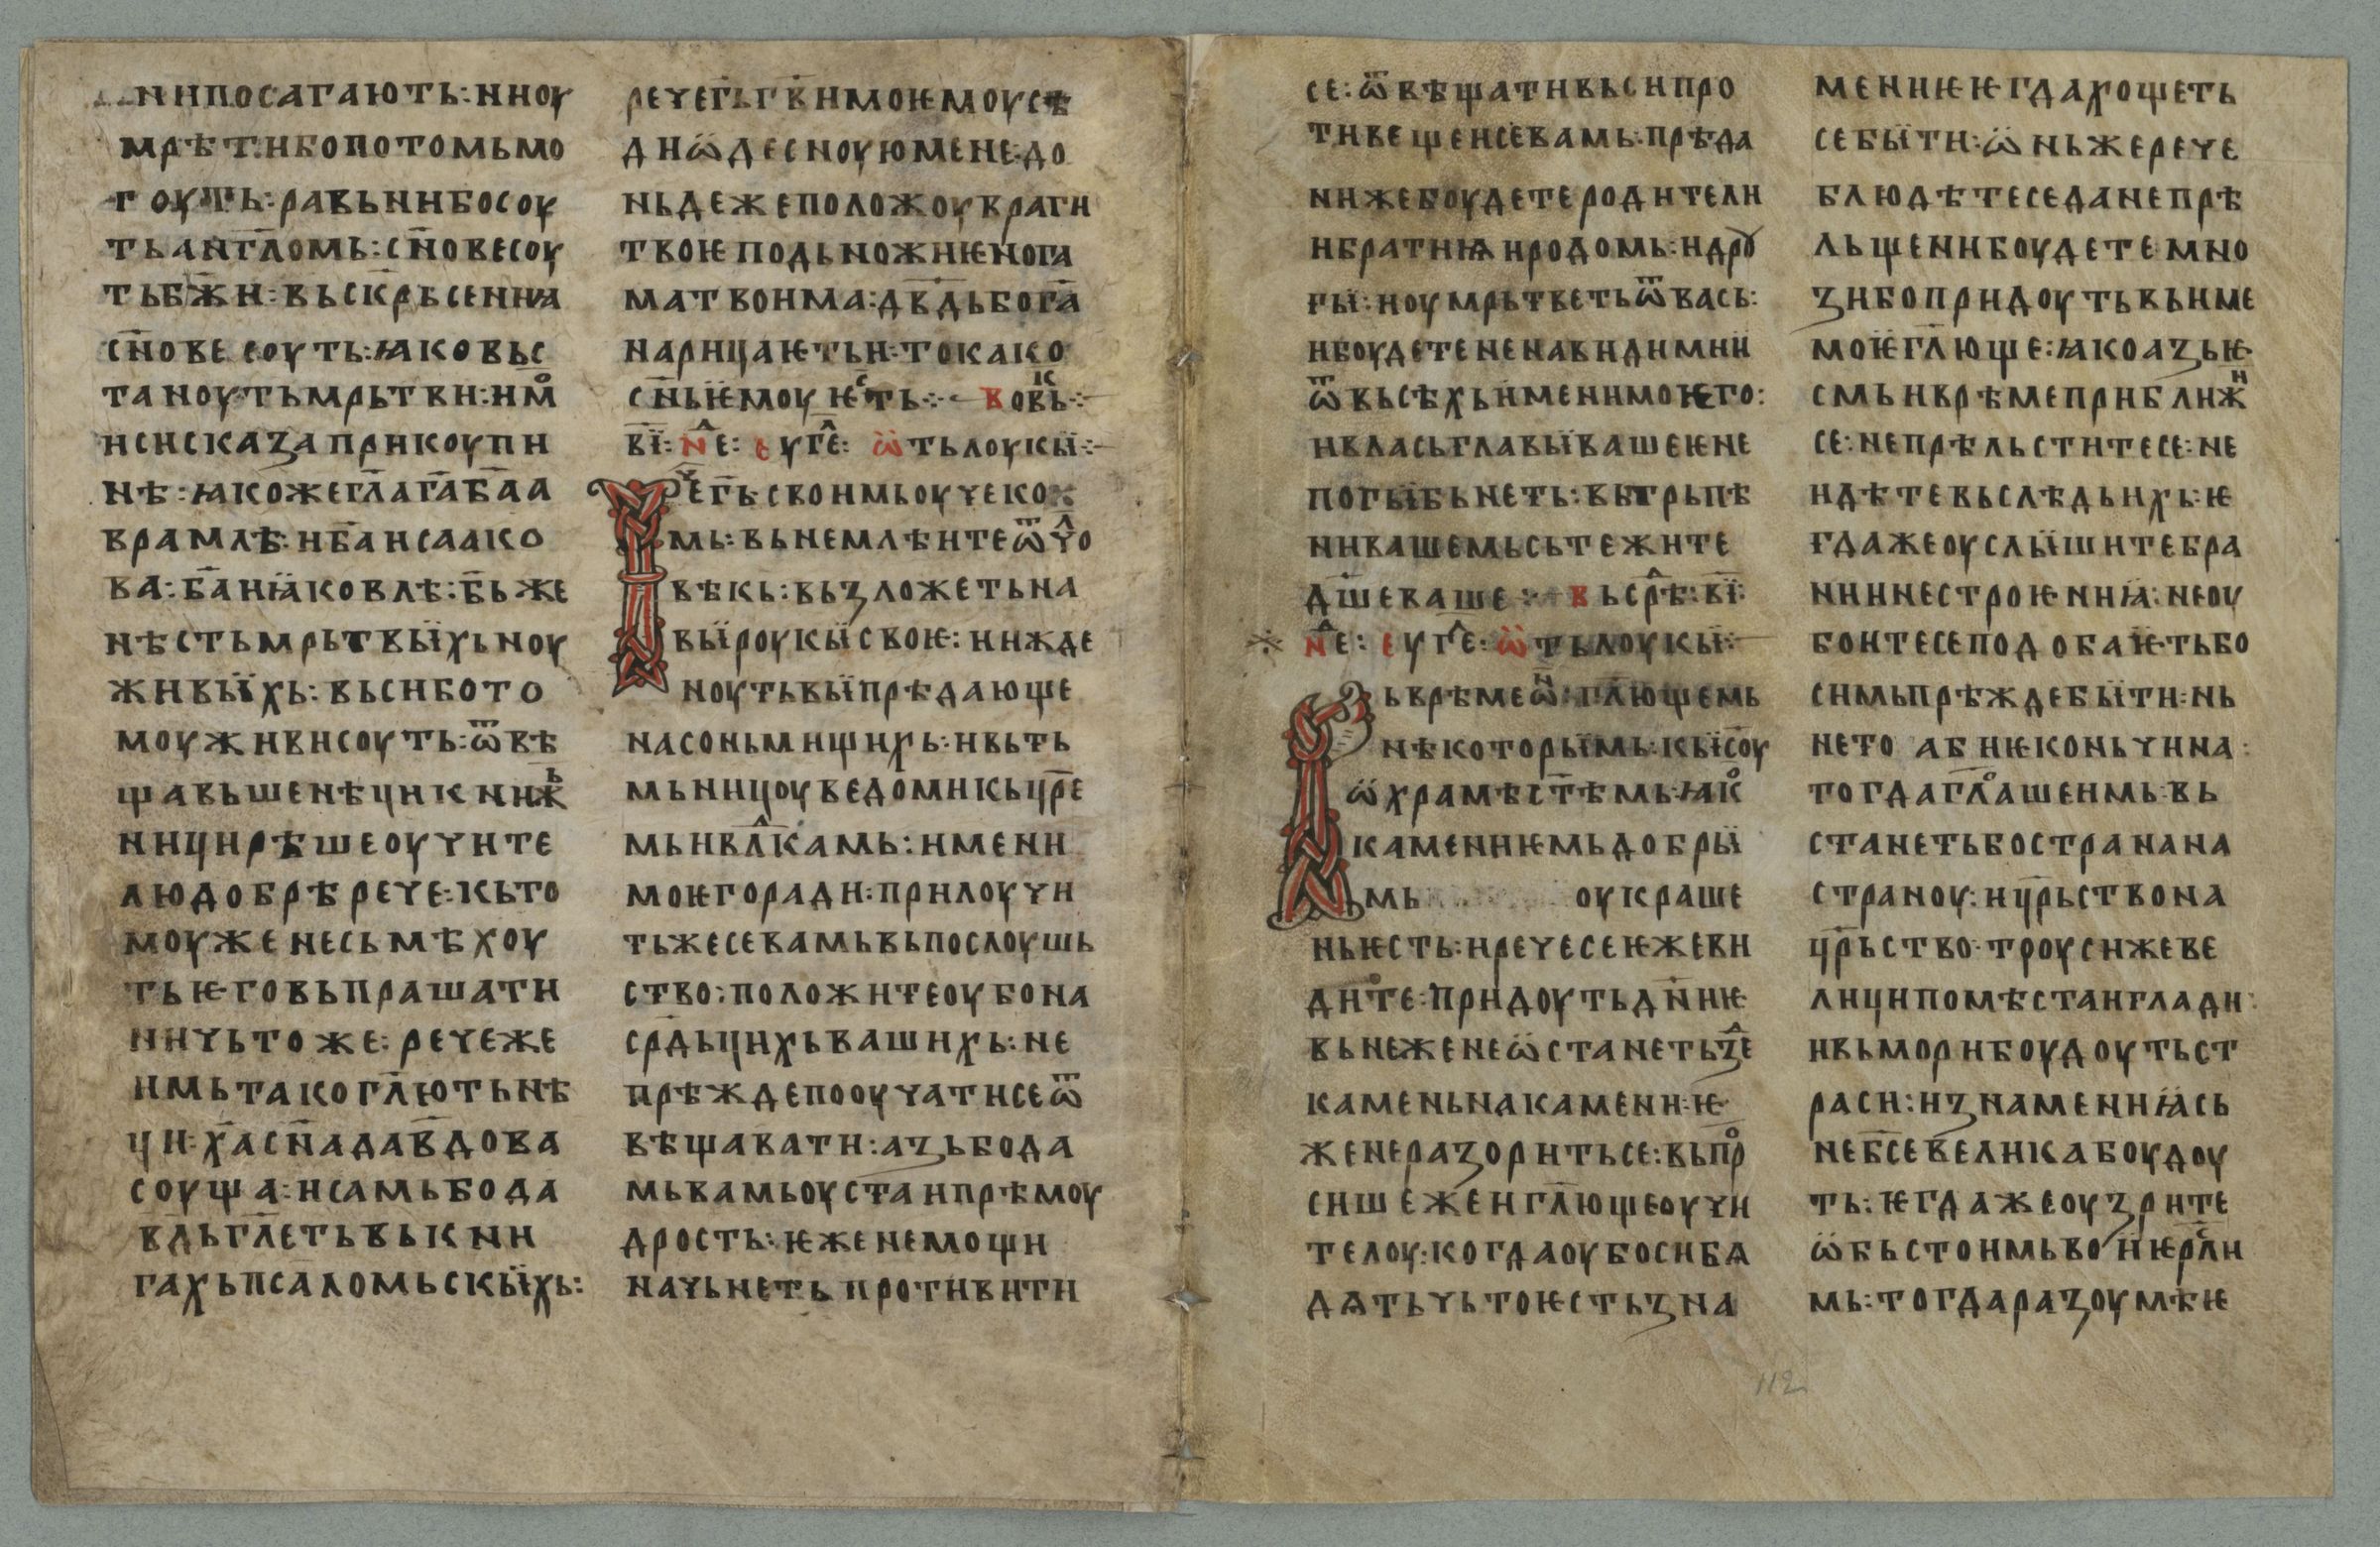 ни посагають: ни оу
мрѣти бо по томь мо
гоуть: равьни бо соу
ть анг҃ломь: сн҃ове соу
ть бж҃и: вьскр҃ьсениꙗ
сн҃ове соуть: ꙗко вьс
таноуть мрьтви: и мⷪ҃
иси сказа при коупи
нѣ: ꙗкоже гл҃а г҃а б҃а а
врамлѣ: и б҃а исаако
ва: б҃а иꙗковлѣ: б҃ь же
нѣсть мрьтвыихь ноу
живыихь: вьси бо то
моу живи соуть: ѿвѣ
щавьше нѣци книжⸯ
ници рѣше оучите
лю добрѣ рече: кь то
моу же не сьмѣхоу
ть ѥго вьпрашати
ничьтоже: рече же
имь тако гл҃ють нѣ
ци: х҃а сн҃а дав҃дова
соуща: и самь бо да
в҃дь гл҃еть вь кни
гахь псаломьскыихь:
рече г҃ь г҃ви моѥмоу сѣ
ди ѡ десноую мене: до
ньдеже положоу враги
твоѥ подьножиѥ нога
ма твоима: дв҃дь бо г҃а
нарицаѥть и: то како
сн҃ь ѥмоу ѥⷭ҇ть:· вовькⸯ:·
в҃і: нⷣе: еуг҃ⷢе: ѿть лоукы:·
Рече г҃ь своимь оученико
мь: вьнемлѣите ѿ чⷧ҃о
вѣкь: вьзложеть на
вы роукы своѥ: и ижде
ноуть вы прѣдающе
на соньмищихь: и вь ть
мьницоу ведоми кь цр҃е
мь и влⷣкамь: имени
моѥго ради: прилоучи
ть же се вамь вь послоушь
ство: положите оубо на
ср҃дьцихь вашихь: не
прѣжде пооучати се ѿ
вѣщавати: азь бо да
мь вамь оуста и прѣмоу
дрость: ѥже не мощи
начьнеть противити
се: ѿвѣщати вьси про
тивещеи се вамь: прѣда
ни же боудете родители
и братиѩ и родомь: и дрꙋ
гы: и оумрьтветь ѿ вась:
и боудете ненавидими
ѿ вьсѣхь имени моѥго:
и влась главы вашеѥ не
погыбьнеть: вь трьпѣ
ни вашемь сьтежите
дш҃е ваше:· вь срⷣѣ: в҃і:
нⷣе: еуг҃ⷢе: ѿть лоукы:·
Вь врѣме ѡнⷪ: гл҃ющемь
нѣкоторымь: кы соу
ѡ храмѣ ст҃ѣмь: ꙗкⷪ
камениѥмь добры
мь оукраше
нь ѥсть: и рече се ѥже ви
диⷮте: придоуть дн҃иѥ
вь неже не ѡстанеть зⷣе
камень на камени: ѥ
же не разорить се: вьпрⷪ
сише же и гл҃юще оучи
телоу: когда оубо си бѫ
дѫть чьто ѥсть зна
мениѥ ѥгда хощеть
се быти: ѡнь же рече
блюдѣте се да не прѣ
льщени боудете мно
зи бо придоуть вь име
моѥ гл҃юще: ꙗко азь ѥ
смь и врѣме приближⷩ
се: не прѣльстите се: не
идѣте вьслѣдь ихь: ѥ
гда же оуслышите бра
ни и нестроѥниꙗ: не оу
боите се подобаѥть бо
симь прѣжде быти: нь
не то абиѥ коньчина:
тогда гл҃аше имь: вь
станеть бо страна на
страноу: и цр҃ьство на
цр҃ьство: троуси же ве
лици по мѣста и глади:
и вь мори боудоуть ст
раси: и знамениꙗ сь
неб҃се велика боудоу
ть: ѥгда же оузрите
ѡбьстоимь вои ѥрⷭ҇ли
мь: тогда разоумѣѥ
112